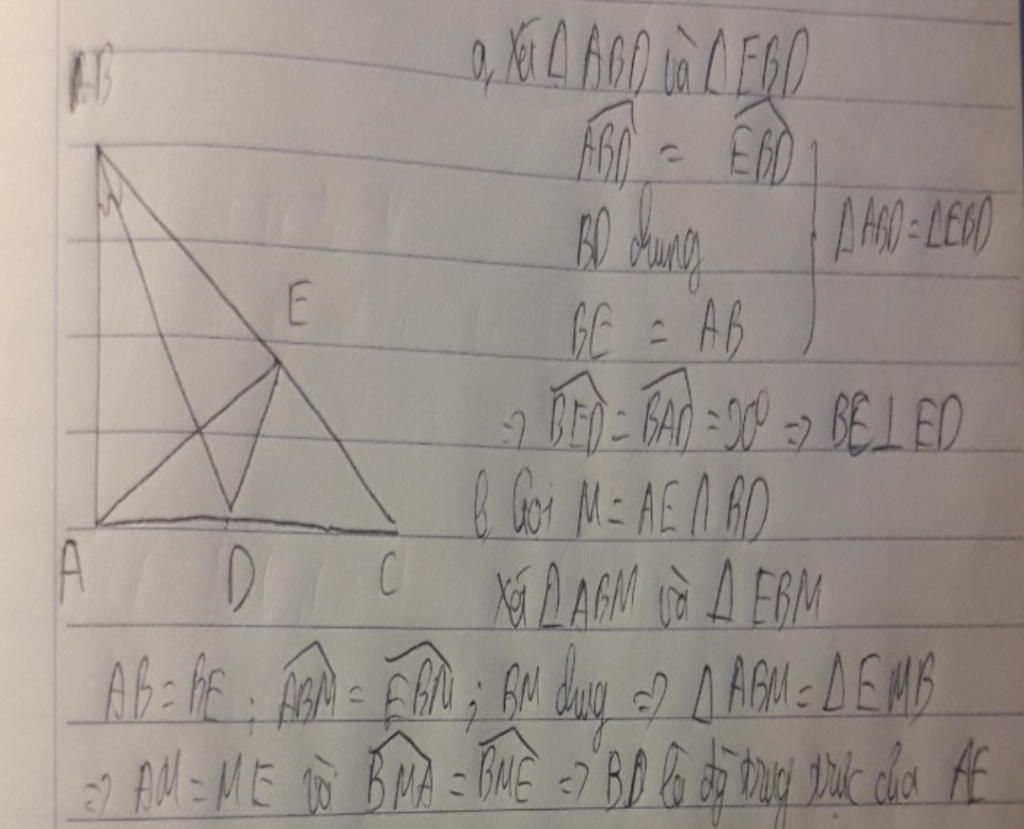 B
a, Xét Δ ABD và Δ EBD
ABD = EBD
BD chung
BE = AB
Δ ABD = Δ EBD
E
=> BED = BAD = 90° => BE ⊥ ED
b, Gọi M = AE ∩ BD
A D C
Xét Δ ABM và Δ EBM
AB = BE ; ABM = EBM ; BM chung => Δ ABM = Δ EMB
=> AM = ME và BMA = BME => BD là đg trung trực của AE